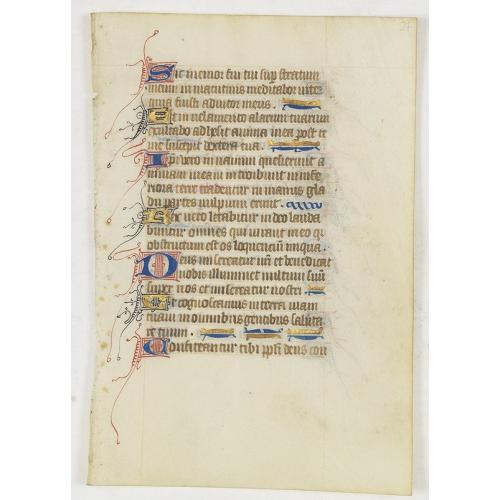 Sic memor fui tui sup stratum
meum in matutinis meditabor in te
quia fuisti adiutor meus.
Et in velamento alarum tuarum
exultabo adhesit anima mea post te
me suscepit dextera tua.
Ipi vero in vanum quesierunt a
nimam meam introibunt in infe
riora terre tradentur in manus gla
dii partes vulpium erunt.
Rex vero letabitur in deo lauda
buntur omnes qui iurant in eo q
obstructum est os loquencium iniqua.
Deus misereatur nri et benedicat
nobis illuminet vultum suu
super nos et misereatur nostri.
Ut cognoscamus in terra viam
tuam in omnibus gentibus saluta
re tuum.
Confiteantur tibi ppli deus con